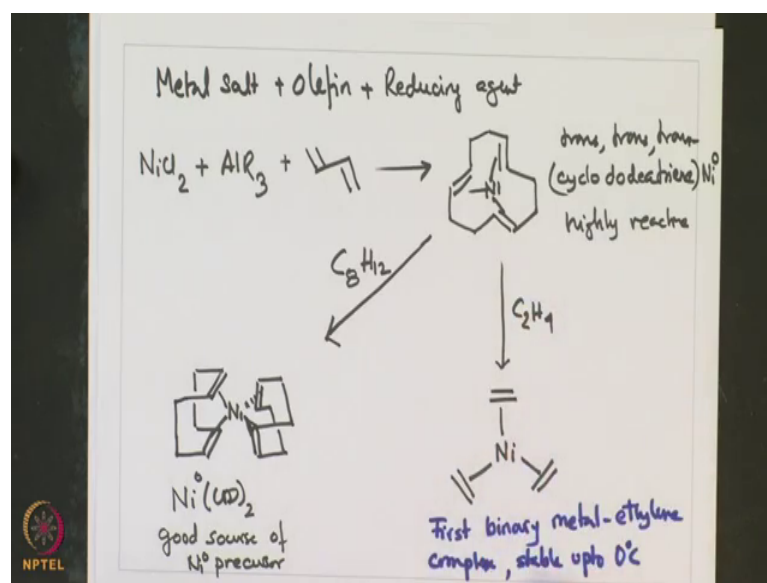 Metal salt + Olefin + Reducing agent
NiCl2 + AlR3 +
trans, trans, trans-
(cyclododecatriene)Ni⁰
highly reactive
Ni
C8H12
C2H4
Ni
Ni
Ni⁰(COD)2
good source of
Ni⁰ precursor
First binary metal-ethylene
complex, stable upto 0°C
NPTEL